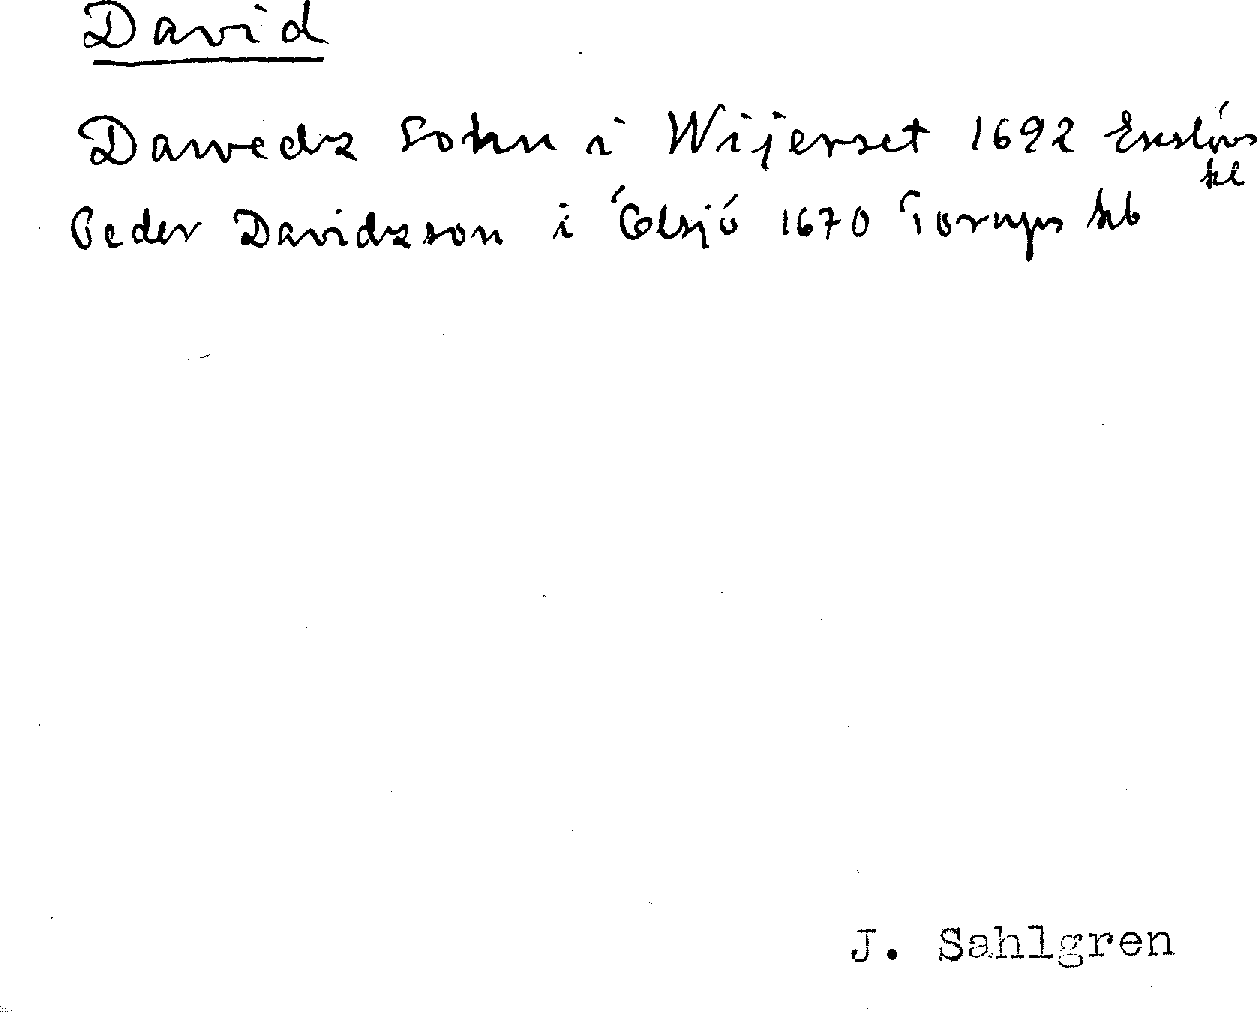 David
Dawedz Sohn i Wijerset 1692 Enslövs
kl
Peder Davidzson i Ólsjö 1670 Torups kb
J. Sahlgren